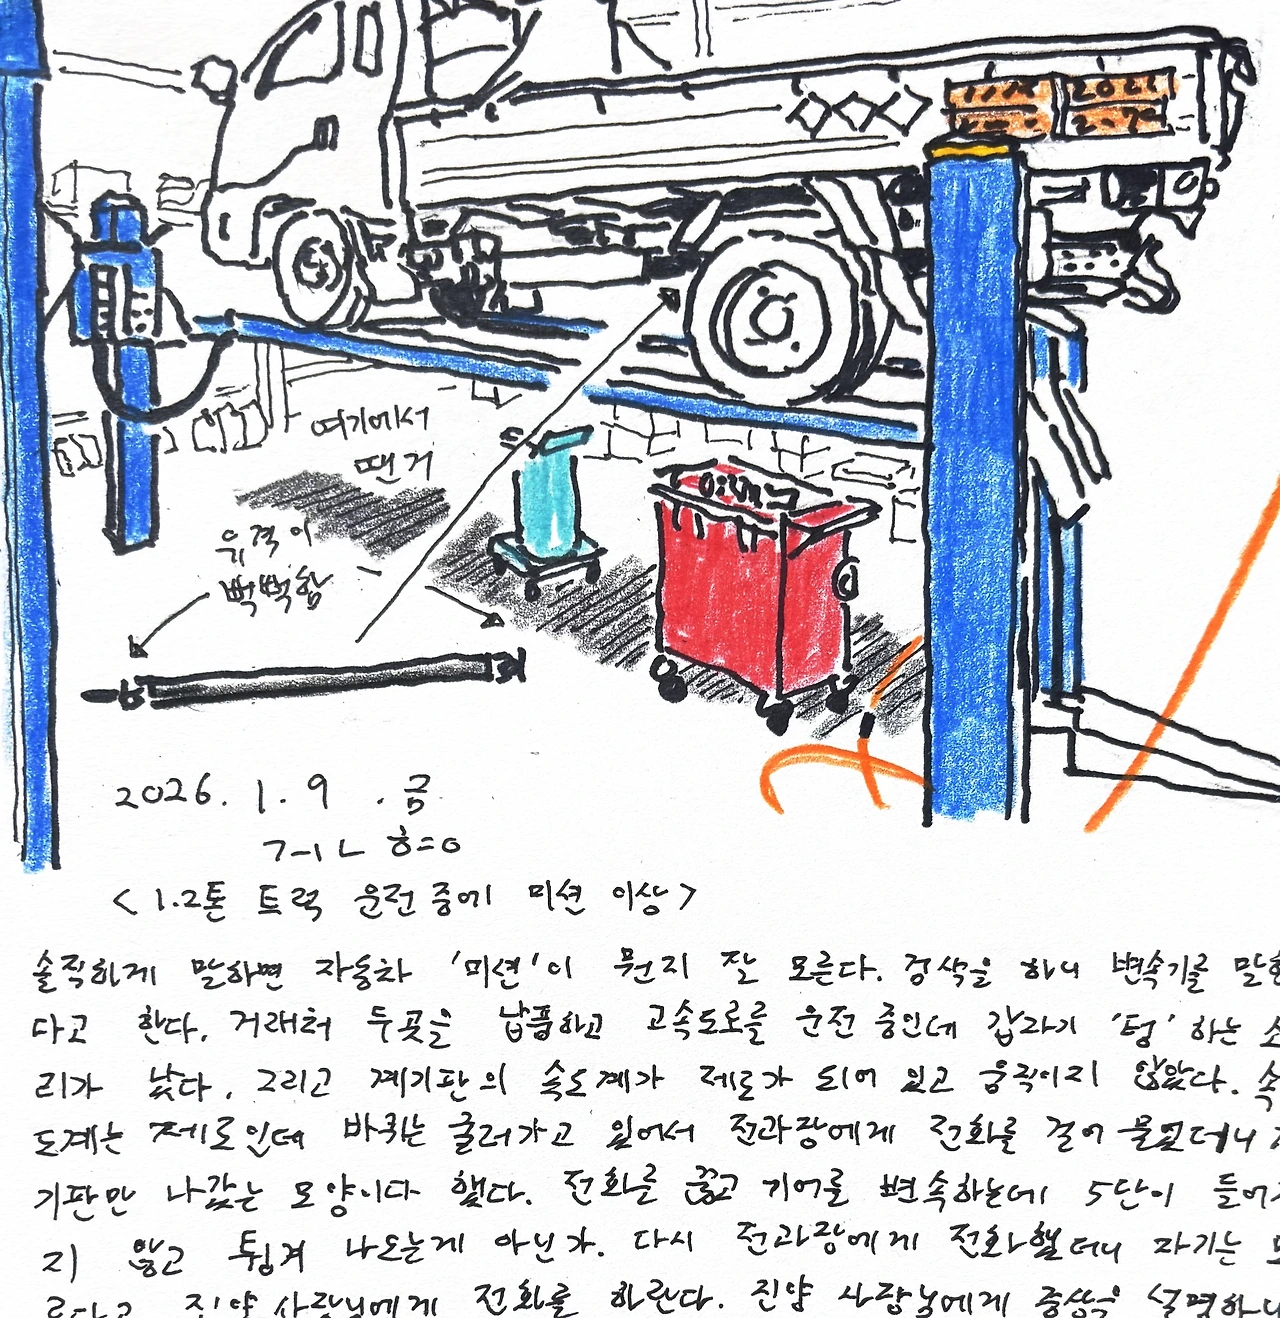 여기에서
땐 거
유격이
뻑뻑함
2026. 1. 9 . 금
< 1.2톤 트럭 운전 중에 미션 이상 >
솔직하게 말하면 자동차 '미션'이 뭔지 잘 모른다. 검색을 하니 변속기를 말한
다고 한다. 거래처 두곳을 납품하고 고속도로를 운전 중인데 갑자기 '텅' 하는 소
리가 났다. 그리고 계기판의 속도계가 제로가 되어 있고 움직이지 않았다. 속
도계는 제로인데 바퀴는 굴러가고 있어서 전과장에게 전화를 걸어 물었더니
기판만 나갔는 모양이다 했다. 전화를 끊고 기어를 변속하는데 5단이 들어가
지 않고 튕겨 나오는게 아닌가. 다시 전과장에게 전화했더니 자기는 모
른다고 진양 사장님에게 전화를 하란다. 진양 사장님에게 증상을 설명하니